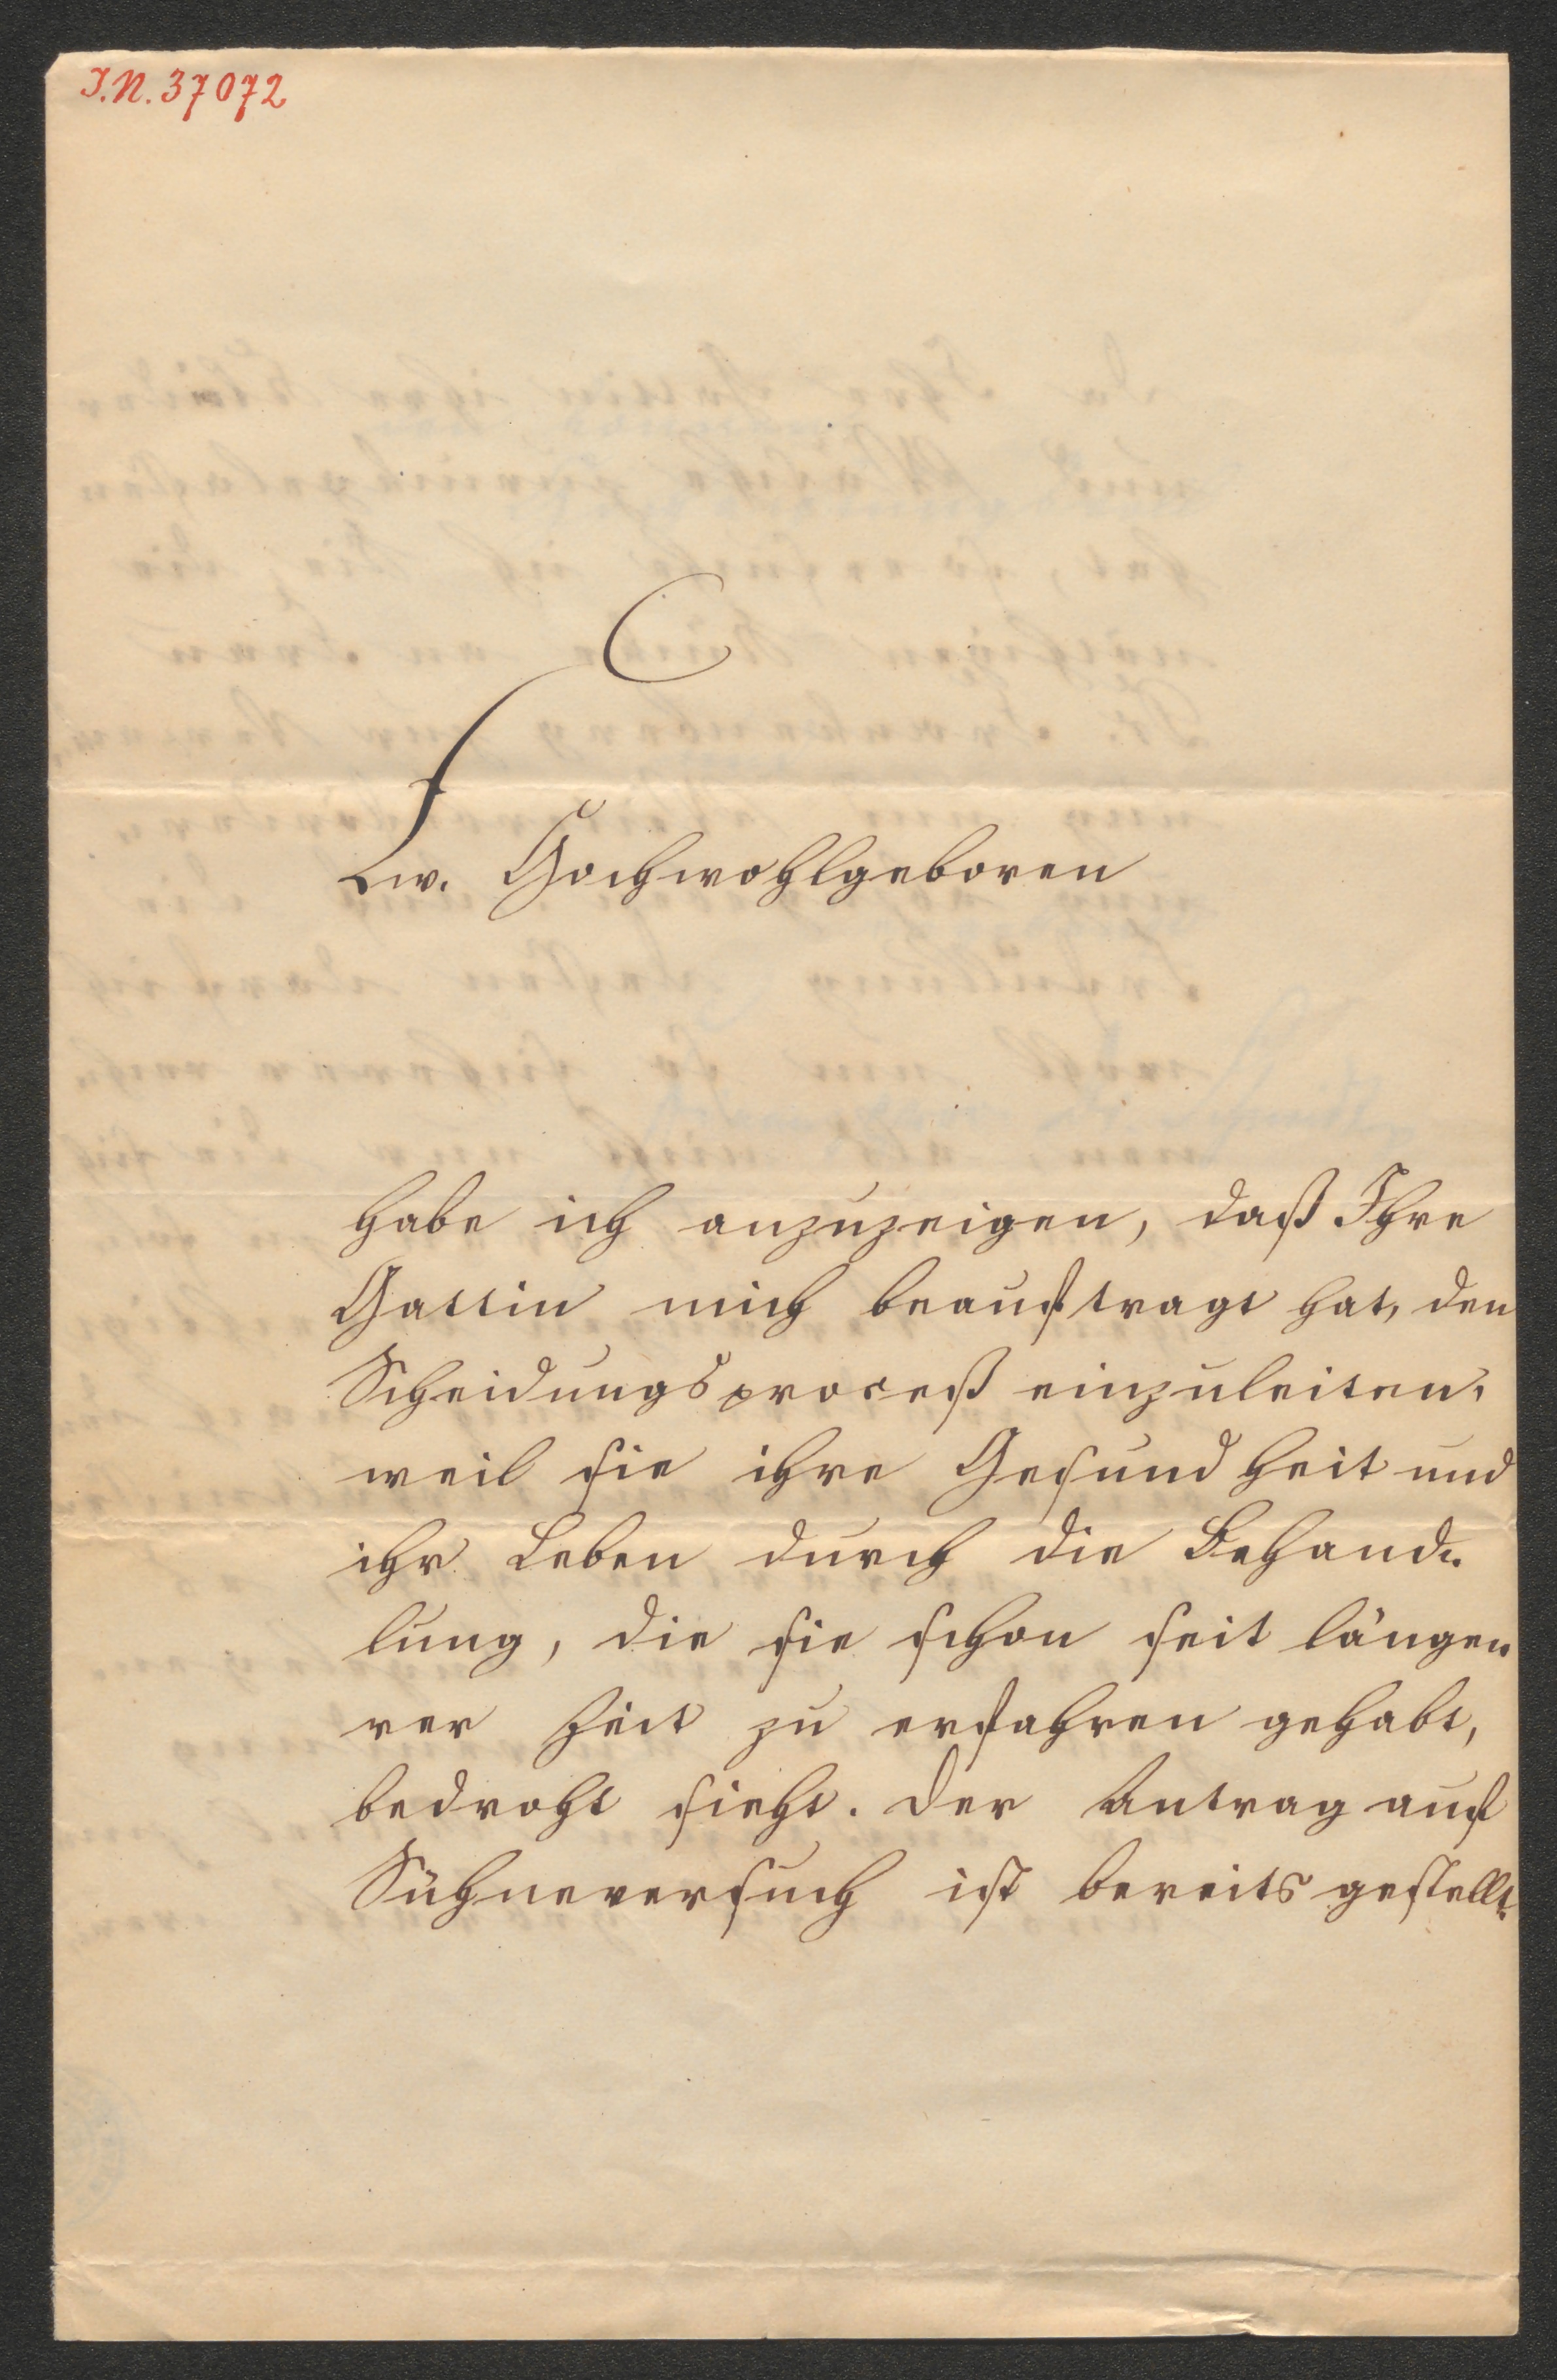 I.N. 37072
Ew. Hochwohlgeboren
habe ich anzuzeigen, daß Ihre
Gattin mich beauftragt hat, den
Scheidungsproceß einzuleiten,
weil sie ihre Gesundheit und
ihr Leben durch die Behand-
lung, die sie schon seit länge-
rer Zeit zu erfahren gehabt,
bedroht sieht. Der Antrag auf
Sühneversuch ist bereits gestellt.